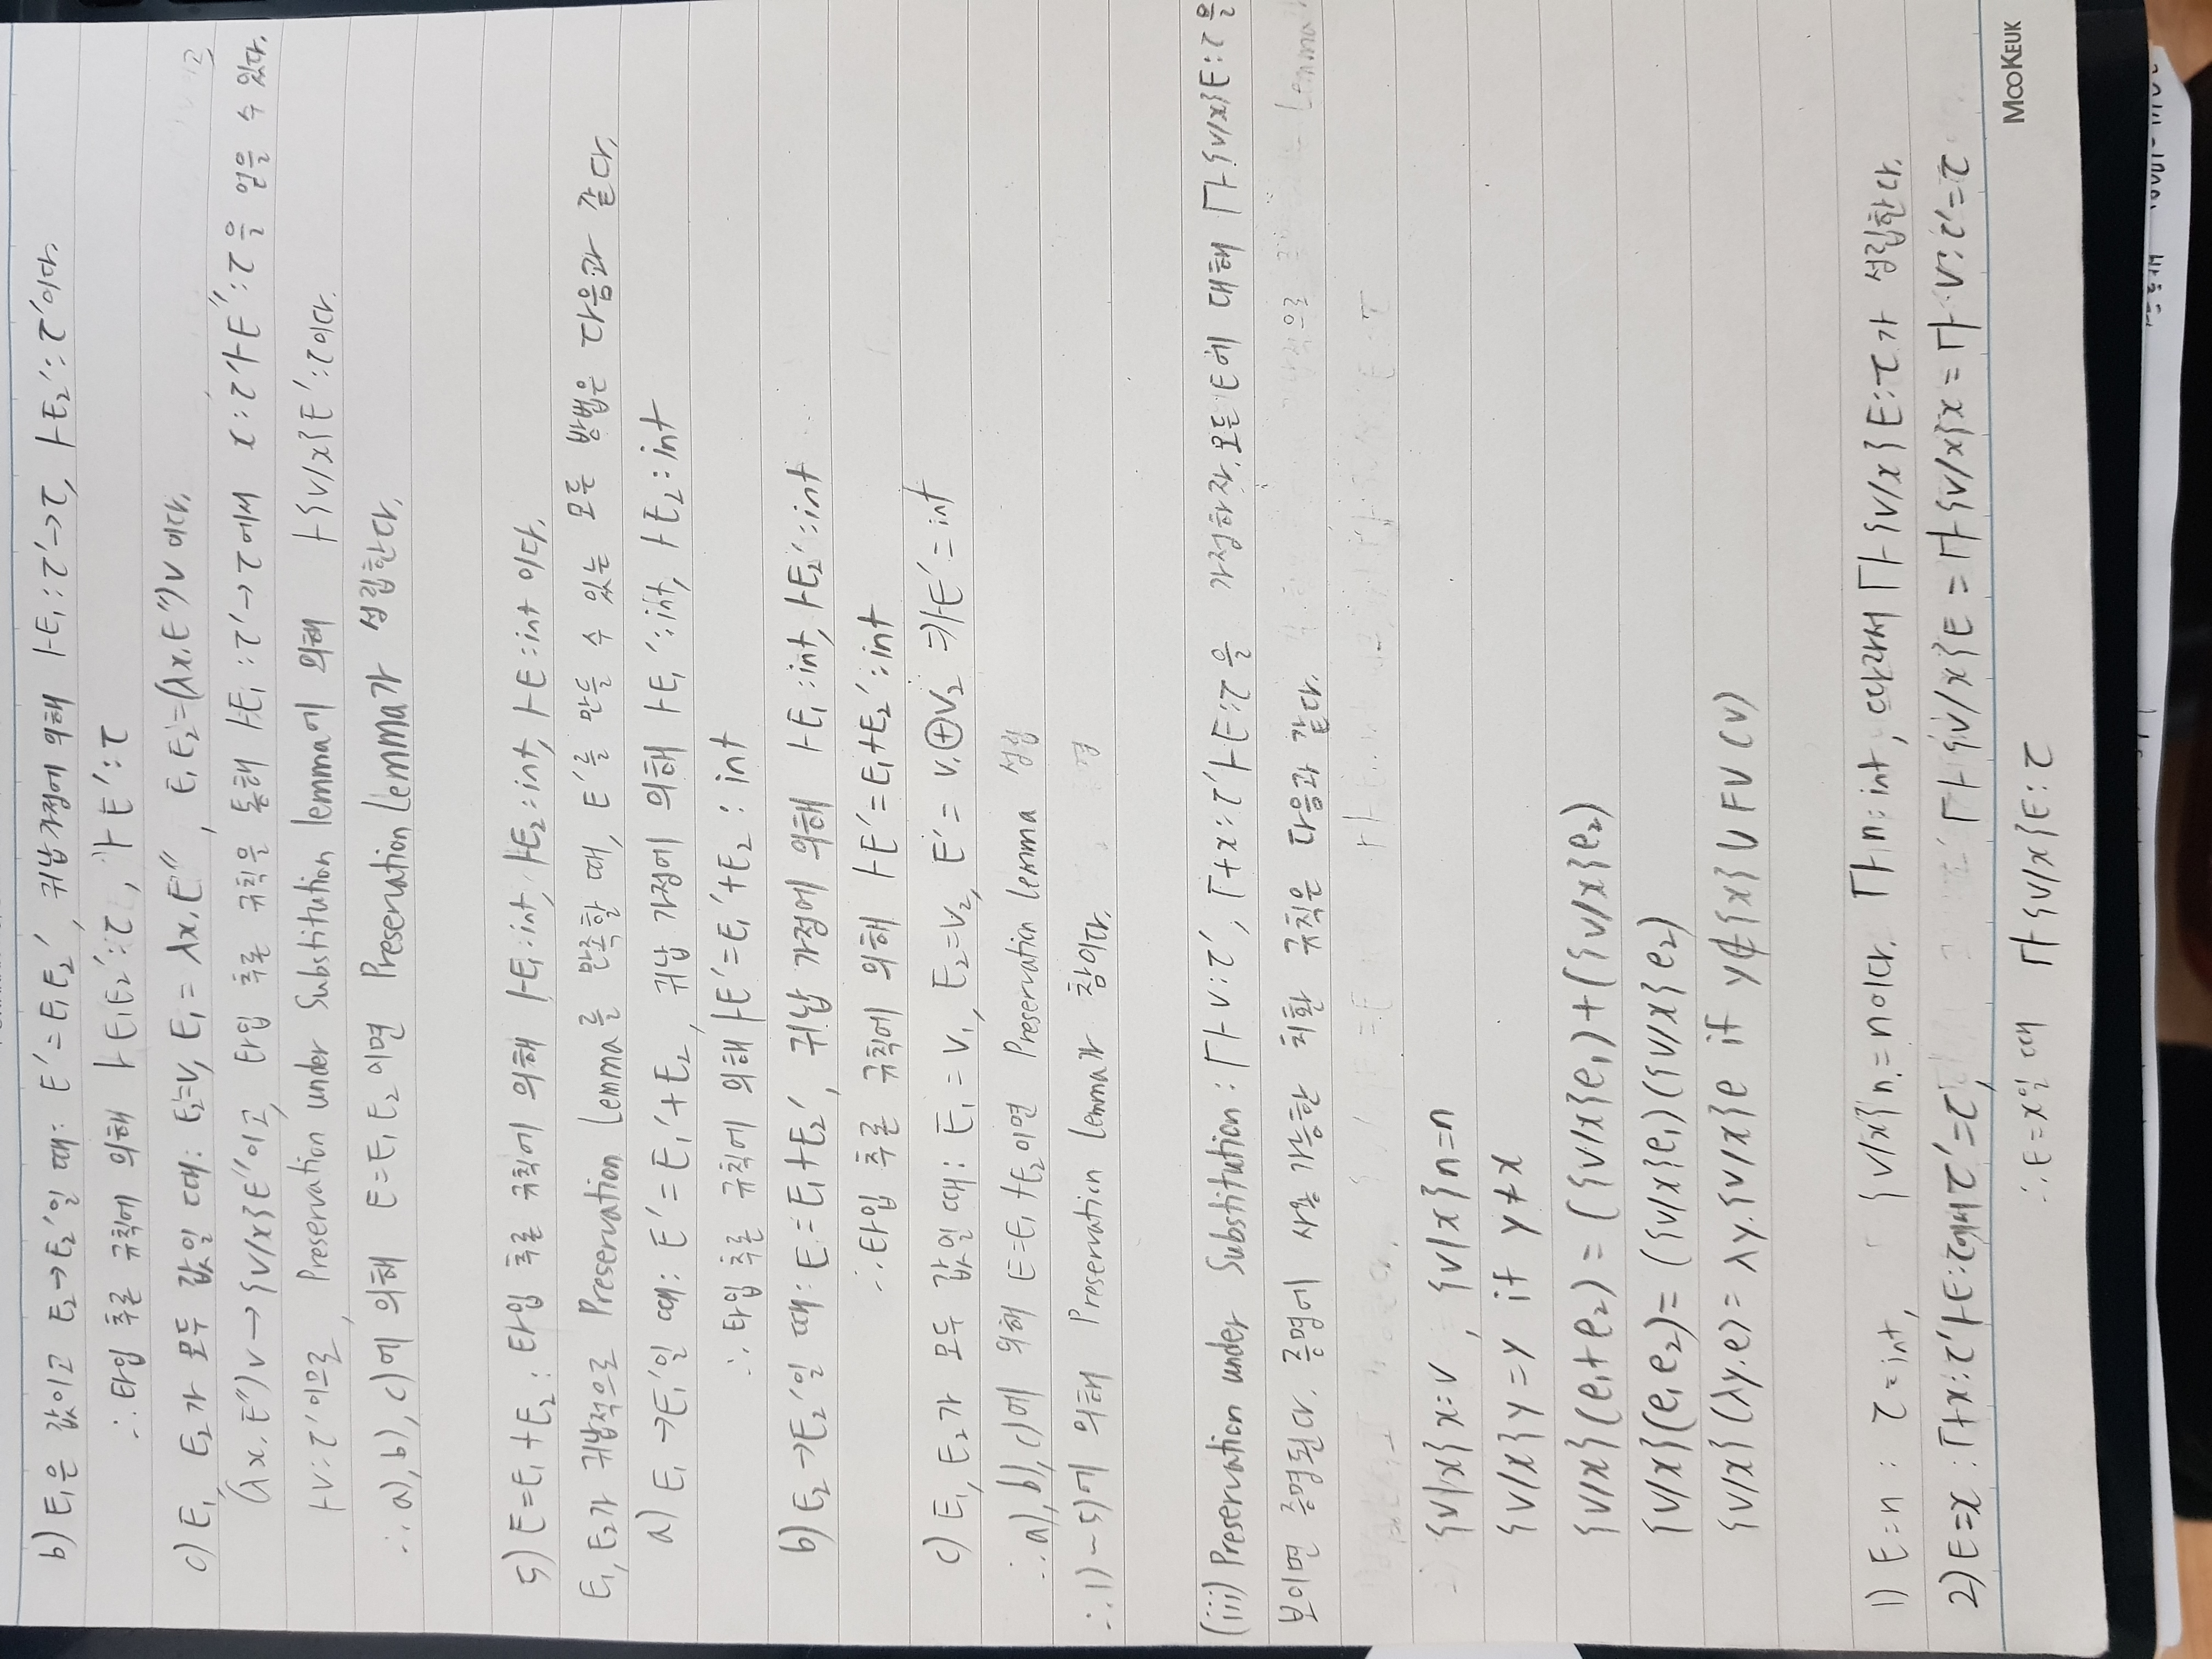 b) E₁은 값이고 E₂→E₂'일 때: E'=E₁E₂', 귀납가정에 의해 ⊢E₁:τ'→τ, ⊢E₂':τ'이다.
∴ 타입 추론 규칙에 의해 ⊢E₁E₂':τ, ⊢E':τ
c) E₁, E₂가 모두 값일 때: E₂=v, E₁=λx.E'', E₁E₂=(λx.E'')v 이다.
(λx.E'')v→{v/x}E''이고, 타입 추론 규칙을 통해 ⊢E₁:τ'→τ에서 x:τ'⊢E'':τ을 얻을 수 있다.
⊢v:τ'이므로, Preservation under Substitution lemma에 의해 ⊢{v/x}E':τ이다.
∴ a), b), c)에 의해 E=E₁E₂이면 Preservation Lemma가 성립한다.
5) E=E₁+E₂: 타입 추론 규칙에 의해 ⊢E₁:int, ⊢E₂:int, ⊢E:int 이다.
E₁, E₂가 귀납적으로 Preservation Lemma를 만족할 때, E'를 만들 수 있는 모든 방법은 다음과 같다.
a) E₁→E₁'일 때: E'=E₁'+E₂, 귀납 가정에 의해 ⊢E₁':int, ⊢E₂:int
∴ 타입 추론 규칙에 의해 ⊢E'=E₁'+E₂:int
b) E₂→E₂'일 때: E=E₁+E₂', 귀납 가정에 의해 ⊢E₁:int, ⊢E₂':int
∴타입 추론 규칙에 의해 ⊢E'=E₁+E₂':int
c) E₁, E₂가 모두 값일 때: E₁=v₁, E₂=v₂, E'=v₁⊕v₂ ⇒⊢E'=int
∴ a), b), c)에 의해 E=E₁+E₂이면 Preservation lemma 성립
∴ 1)~5)에 의해 Preservation Lemma가 참이다.
(iii) Preservation under Substitution: Γ⊢v:τ', Γ+x:τ'⊢E:τ을 가정하자. 모든 E에 대해 Γ⊢{v/x}E:τ을
보이면 증명된다. 증명에 사용 가능한 치환 규칙은 다음과 같다.
{v/x}x=v, {v/x}n=n
{v/x}y=y if y≠x
{v/x}(e₁+e₂)=({v/x}e₁)+({v/x}e₂)
{v/x}(e₁e₂)=({v/x}e₁)({v/x}e₂)
{v/x}(λy.e)=λy.{v/x}e if y∉{x}∪FV(v)
1) E=n: τ=int, {v/x}n=n이다. Γ⊢n:int, 따라서 Γ⊢{v/x}E:τ가 성립한다.
2) E=x: Γ+x:τ'⊢E:τ에서 τ'=τ, Γ⊢{v/x}E=Γ⊢{v/x}x=Γ⊢v:τ'=τ
∴E=x일 때 Γ⊢{v/x}E:τ
MOOKEUK